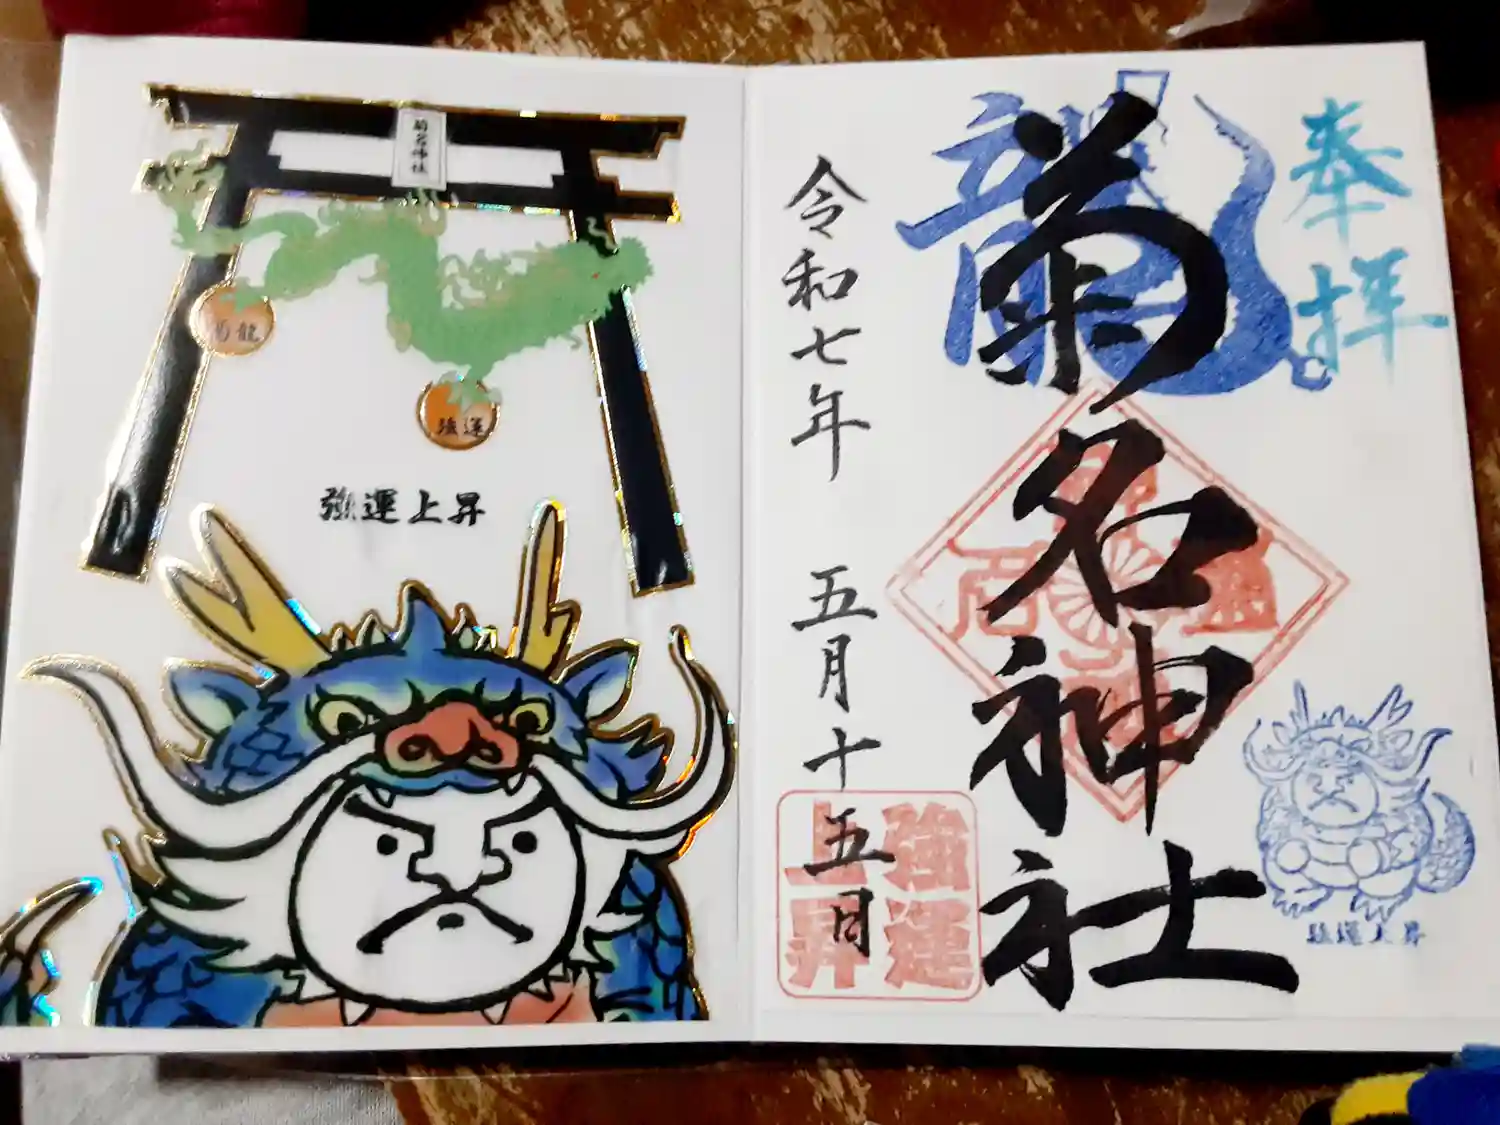 奉拝
龍
菊名神社
強運上昇
令和七年 五月十五日
強運
上昇
菊名神社
菊龍
強運
強運上昇